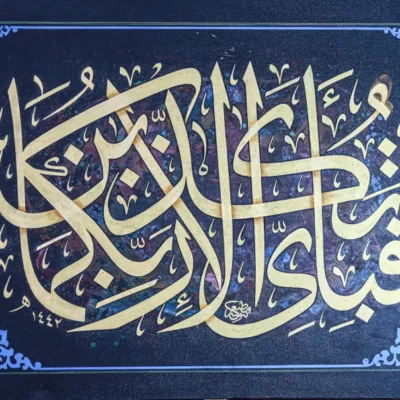 فبأي آلاء ربكما تكذبان
١٤٤٢ هـ